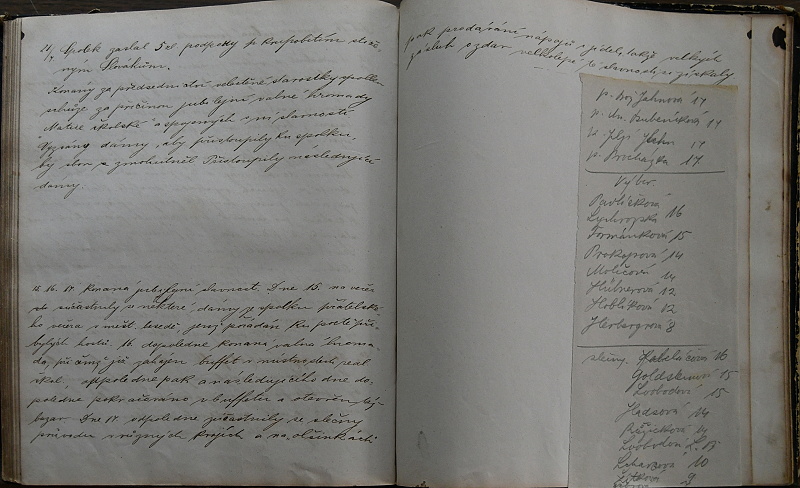 21/7 Spolek zaslal 5 zl podpory p.
ným
Konány za předsednictví velectěné starostky spolku
schůze za příčinou jubilejní valné hromady
Matice školské a spojených s ní slavností
Vyzvány dámy, aby přistoupily ku spolku,
by sbor se zmohutněl Přistoupily následující
dámy.
15. 16. 17. Konána jubilejní slavnost. Dne 15. na večer
se súčastnily některé dámy ze spolku přátelské-
ho večera v měšť. besedě, jenž pořádán ku poctě při-
bylých hostů. 16. dopoledne konána valná hroma-
da, při čemž již zahájen buffet v místnostech reál.
škol. odpoledne pak a následujícího dne do-
poledne pokračováno v buffetu a otevřen též
bazar. Dne 17 odpoledne zúčastnily se slečny
průvodu v různých krojích a na
pak prodávání nápojů a jídel, takže velkých
zásluh o zdar velkolepé té slavnosti si získaly
p. Jahnová 14
p. Bubeníková 14
Jahn 14
p. Procházka 17
Výbor
Pavlíčková
16
Formánková 15
Prokopová 14
Moličová 14
Hübnerová 12
Koblíková 12
8
slečny. Kabeláčova 16
15
Svobodová 15
14
Růžičková 14
Svobodová L. 13
10
9